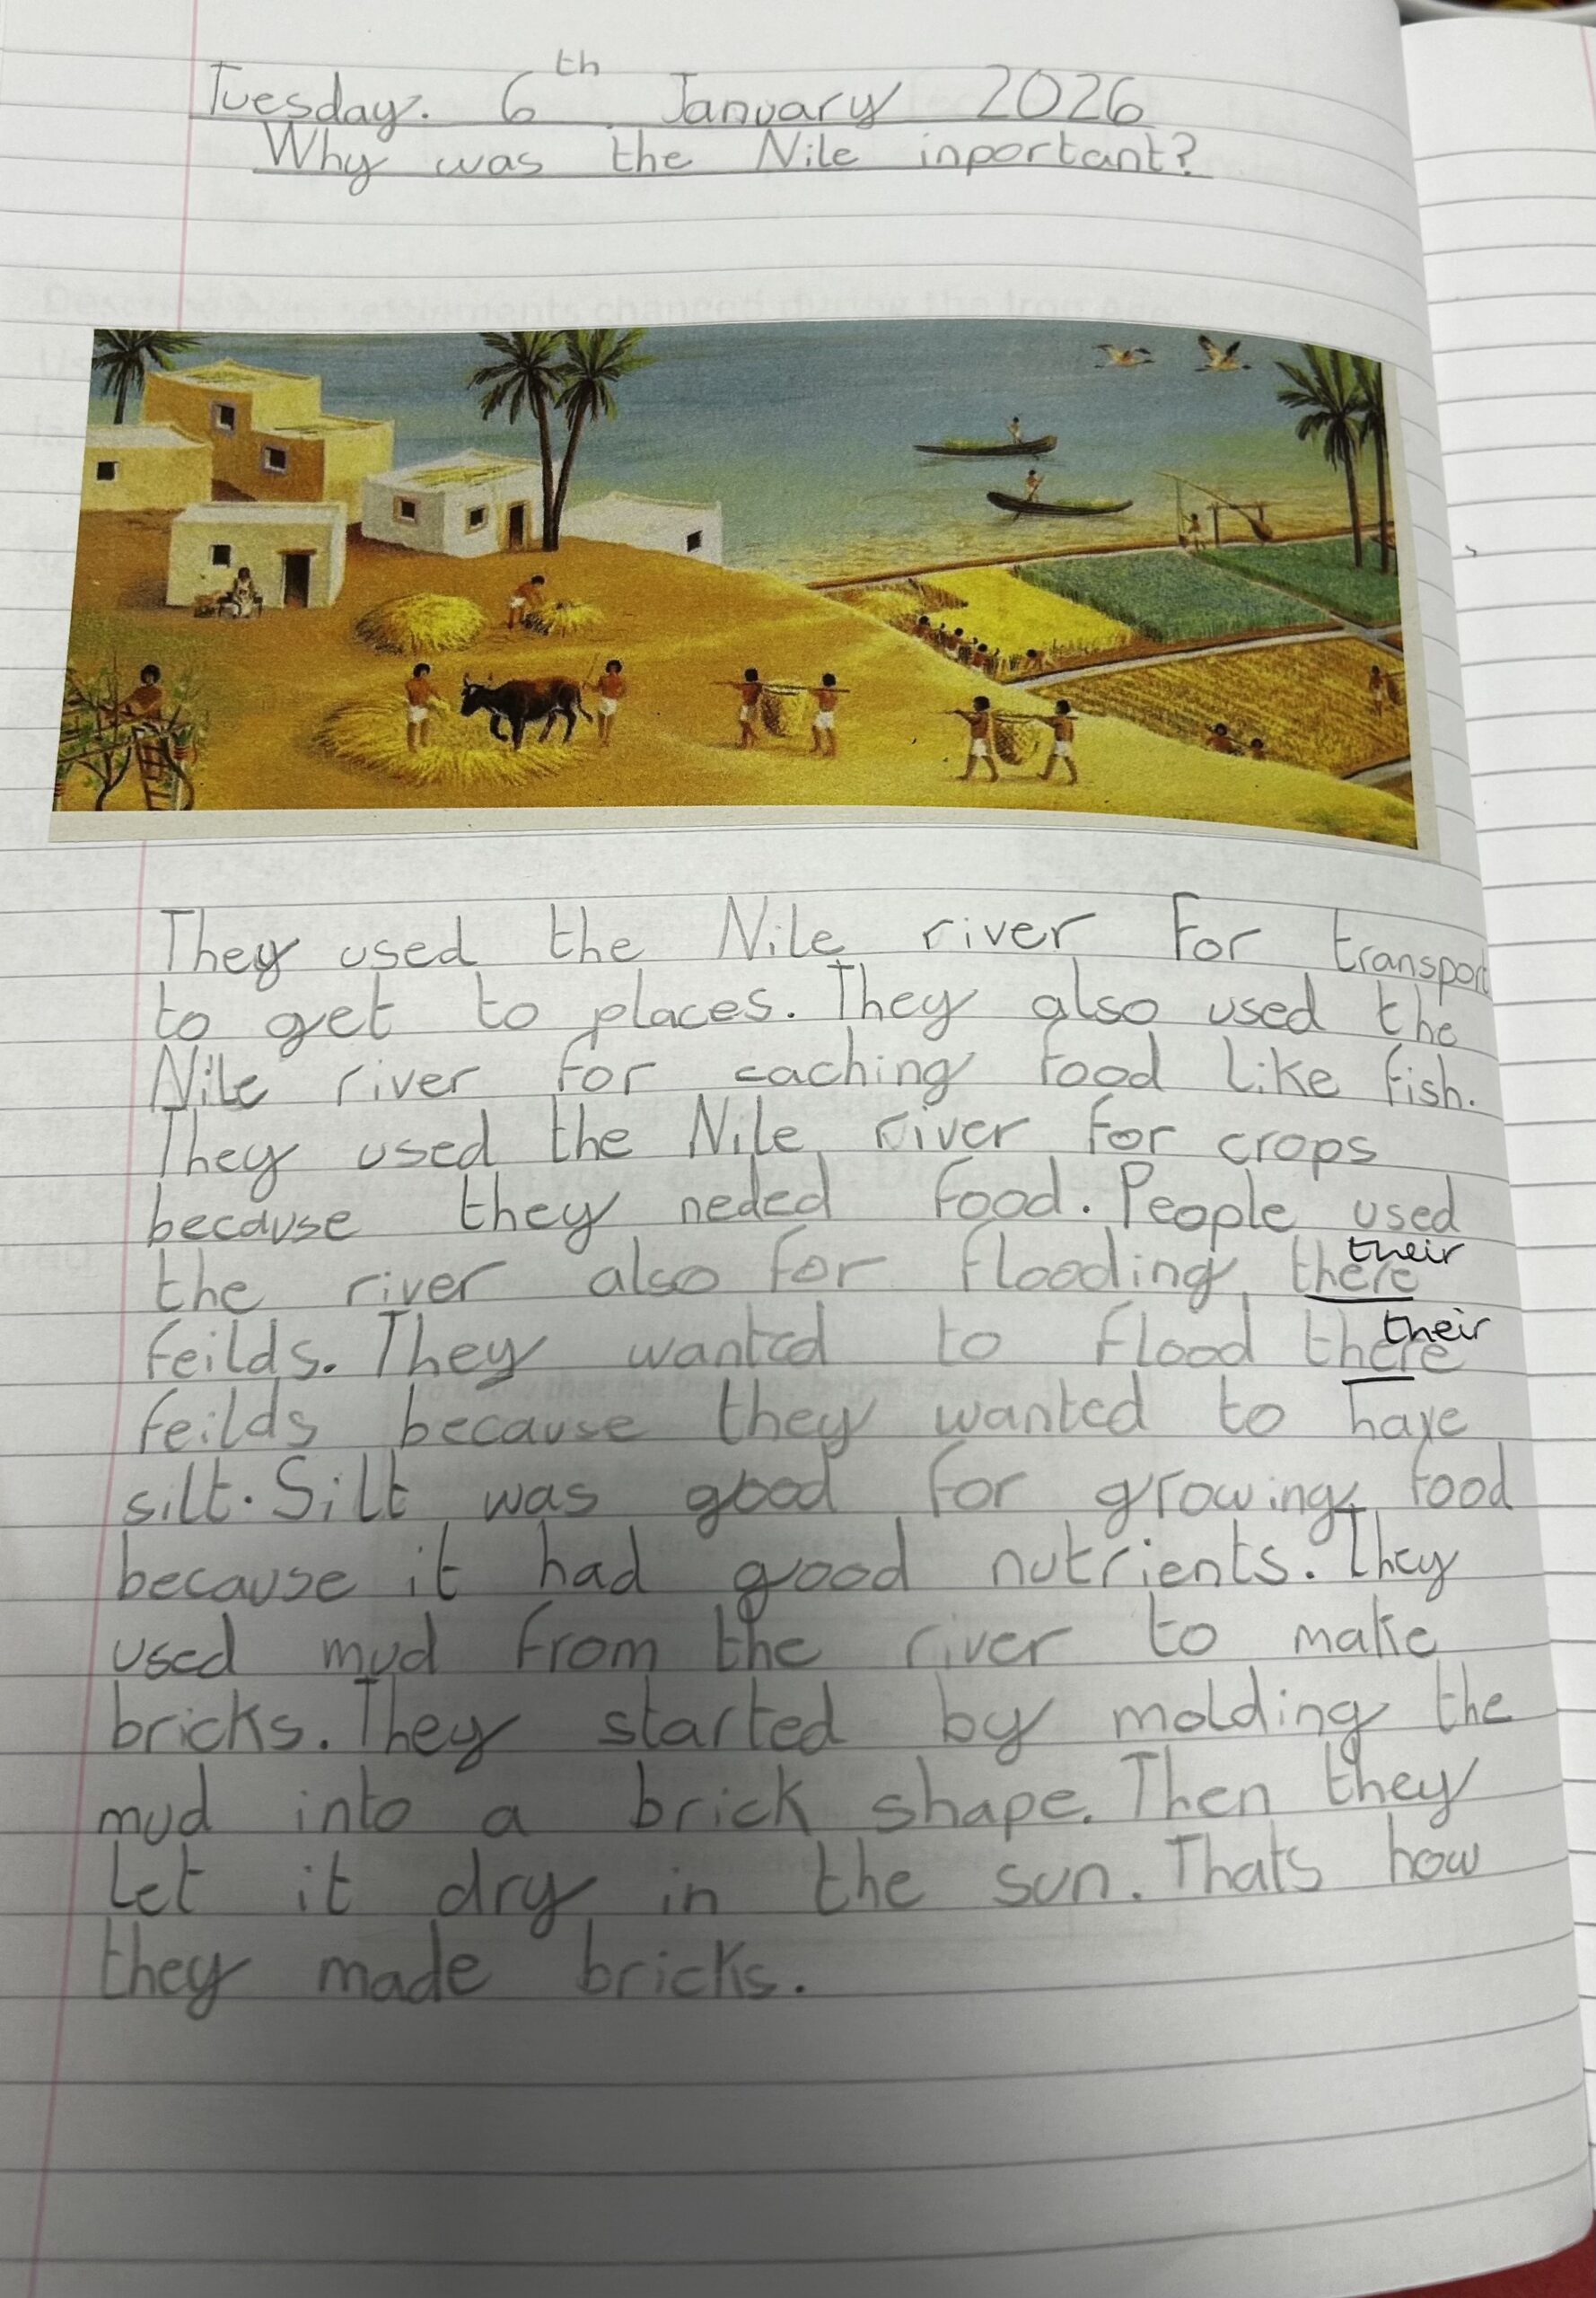 Tuesday. 6th January 2026
Why was the Nile inportant?
They used the Nile river for transport
to get to places. They also used the
Nile river for caching food like fish.
They used the Nile river for crops
because they neded food. People used
their
the river also for flooding there
their
feilds. They wanted to flood there
feilds because they wanted to have
silt. Silt was good for growing food
because it had good nutrients. They
used mud from the river to make
bricks. They started by molding the
mud into a brick shape. Then they
let it dry in the sun. Thats how
they made bricks.